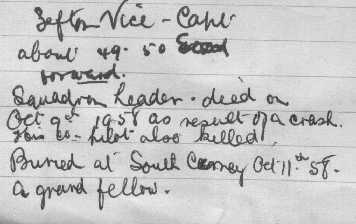 Sefton Vice - Capt.
about 49. 50
forward.
Squadron Leader. died on
Oct 9th 1958 as result of a crash.
His co-pilot also killed.
Buried at South Cerney Oct 11th 58.
a grand fellow.